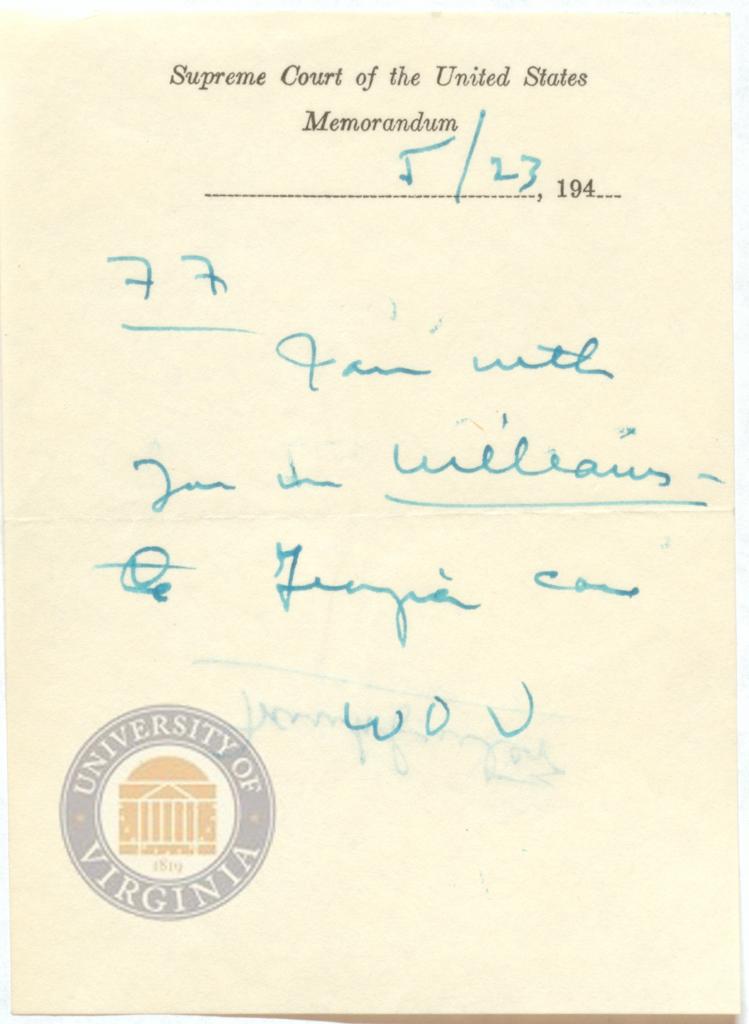 Supreme Court of the United States
Memorandum
5/23, 194
FF
I am with
you in Williams -
the Georgia case
WOD
UNIVERSITY OF VIRGINIA
1819